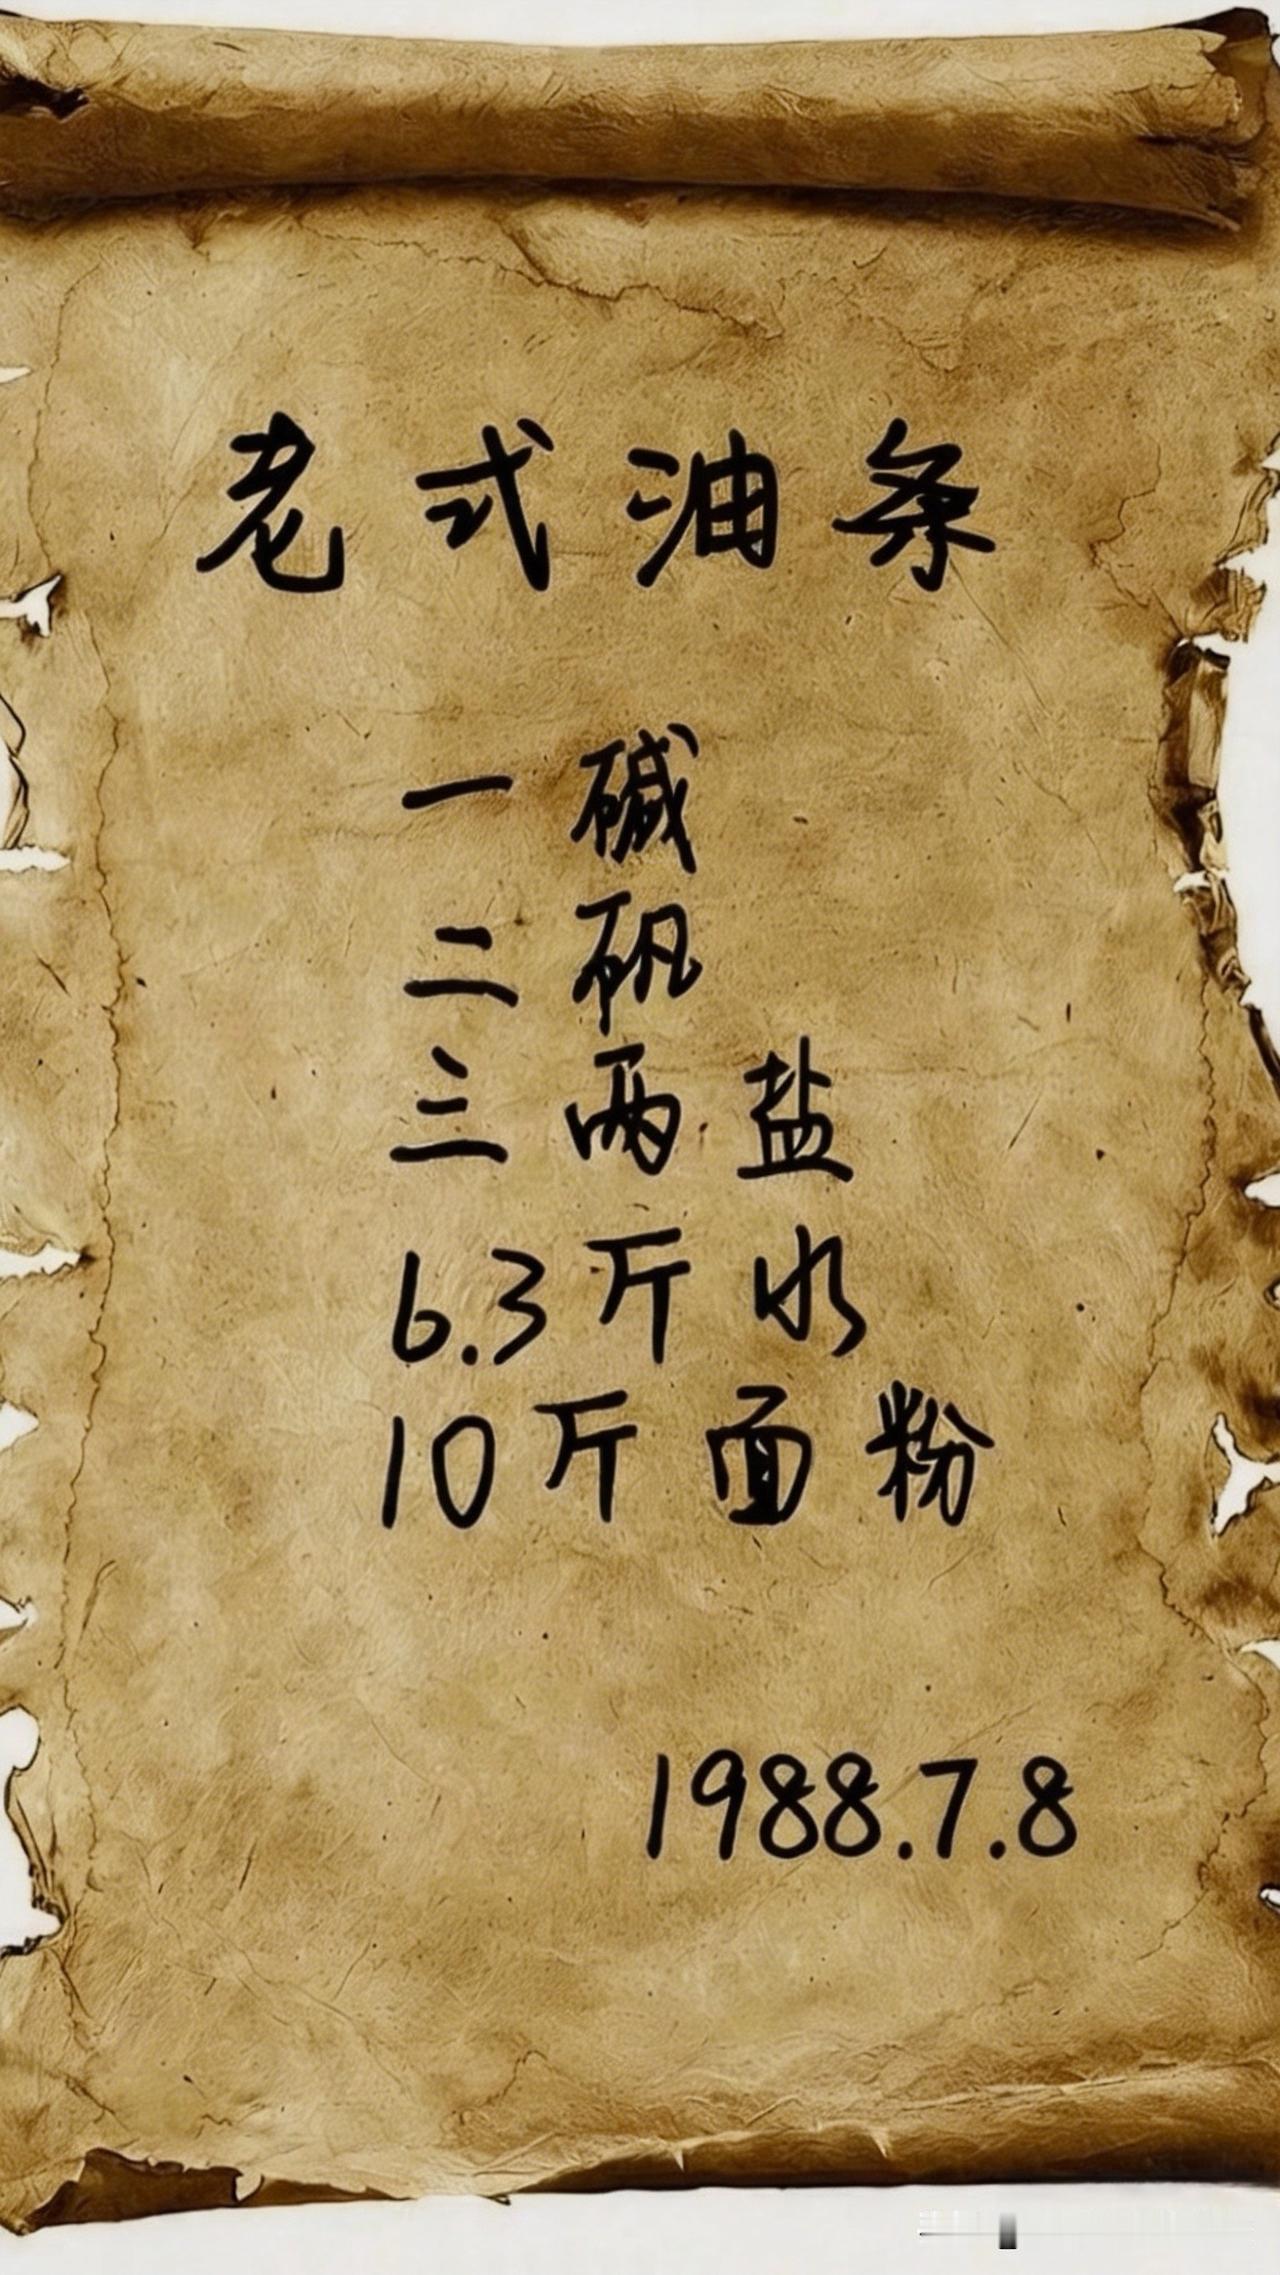 老式油条
一碱
二矾
三两盐
6.3斤水
10斤面粉
1988.7.8